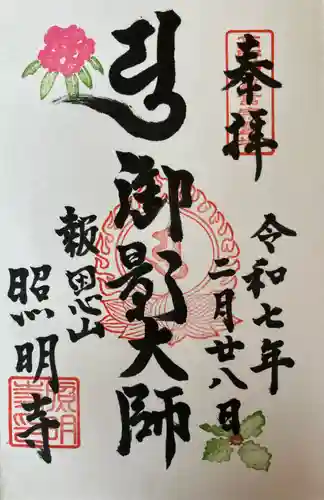 奉拝
令和七年
二月廿八日
御影大師
報恩山
照明寺